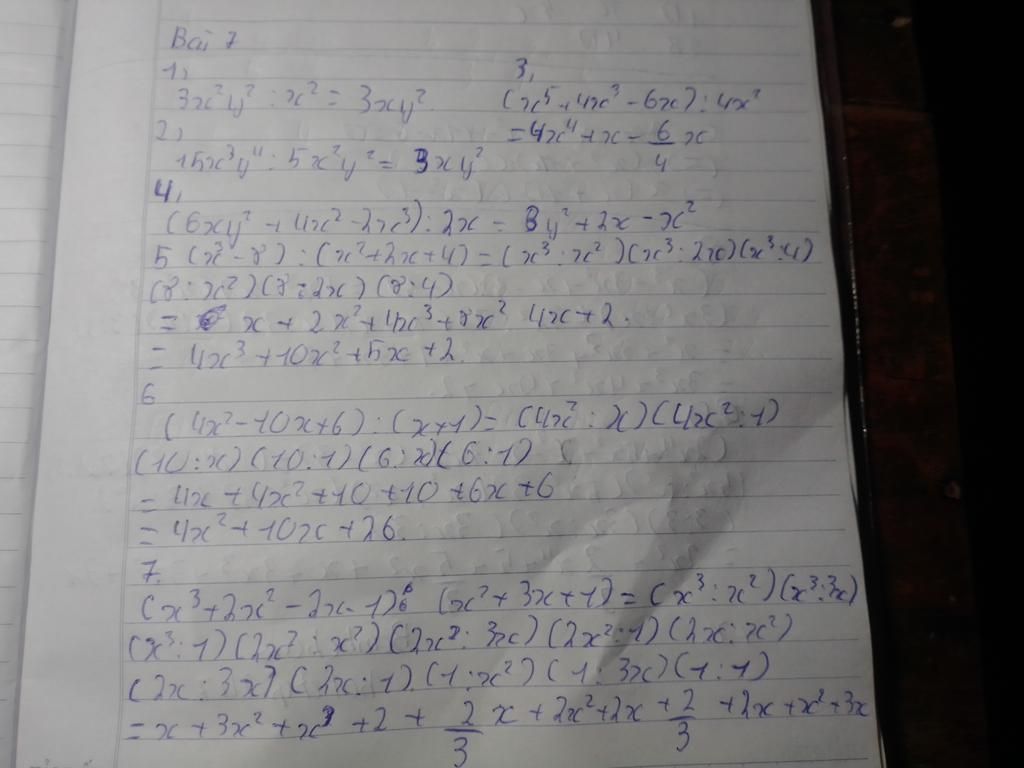 Bài 7
1,
3x²y² : x² = 3xy².
2,
15x³y⁴ : 5x²y² = 3xy²
3,
(x⁵ + 4x³ - 6x) : 4x²
= 4x⁴ + x - 6/4 x
4,
(6xy² + 4x² - 2x³) : 2x = 3y² + 2x - x²
5 (x³ - 8) : (x² + 2x + 4) = (x³ : x²)(x³ : 2x)(x³ : 4)
(8 : x²)(8 : 2x)(8 : 4)
= x + 2x² + 4x³ + 8x² 4x + 2.
= 4x³ + 10x² + 5x + 2.
6
(4x² - 10x + 6) : (x + 1) = (4x² : x)(4x² : 1)
(10 : x)(10 : 1)(6 : x)(6 : 1)
= 4x + 4x² + 10 + 10 + 6x + 6
= 4x² + 10x + 26.
7.
(x³ + 2x² - 2x - 1) : (x² + 3x + 1) = (x³ : x²)(x³ : 3x)
(x³ : 1)(2x² : x²)(2x² : 3x)(2x² : 1)(2x : x²)
(2x : 3x)(2x : 1)(1 : x²)(1 : 3x)(1 : 1)
= x + 3x² + x³ + 2 + 2/3 x + 2x² + 2x + 2/3 + 2x + x² + 3x